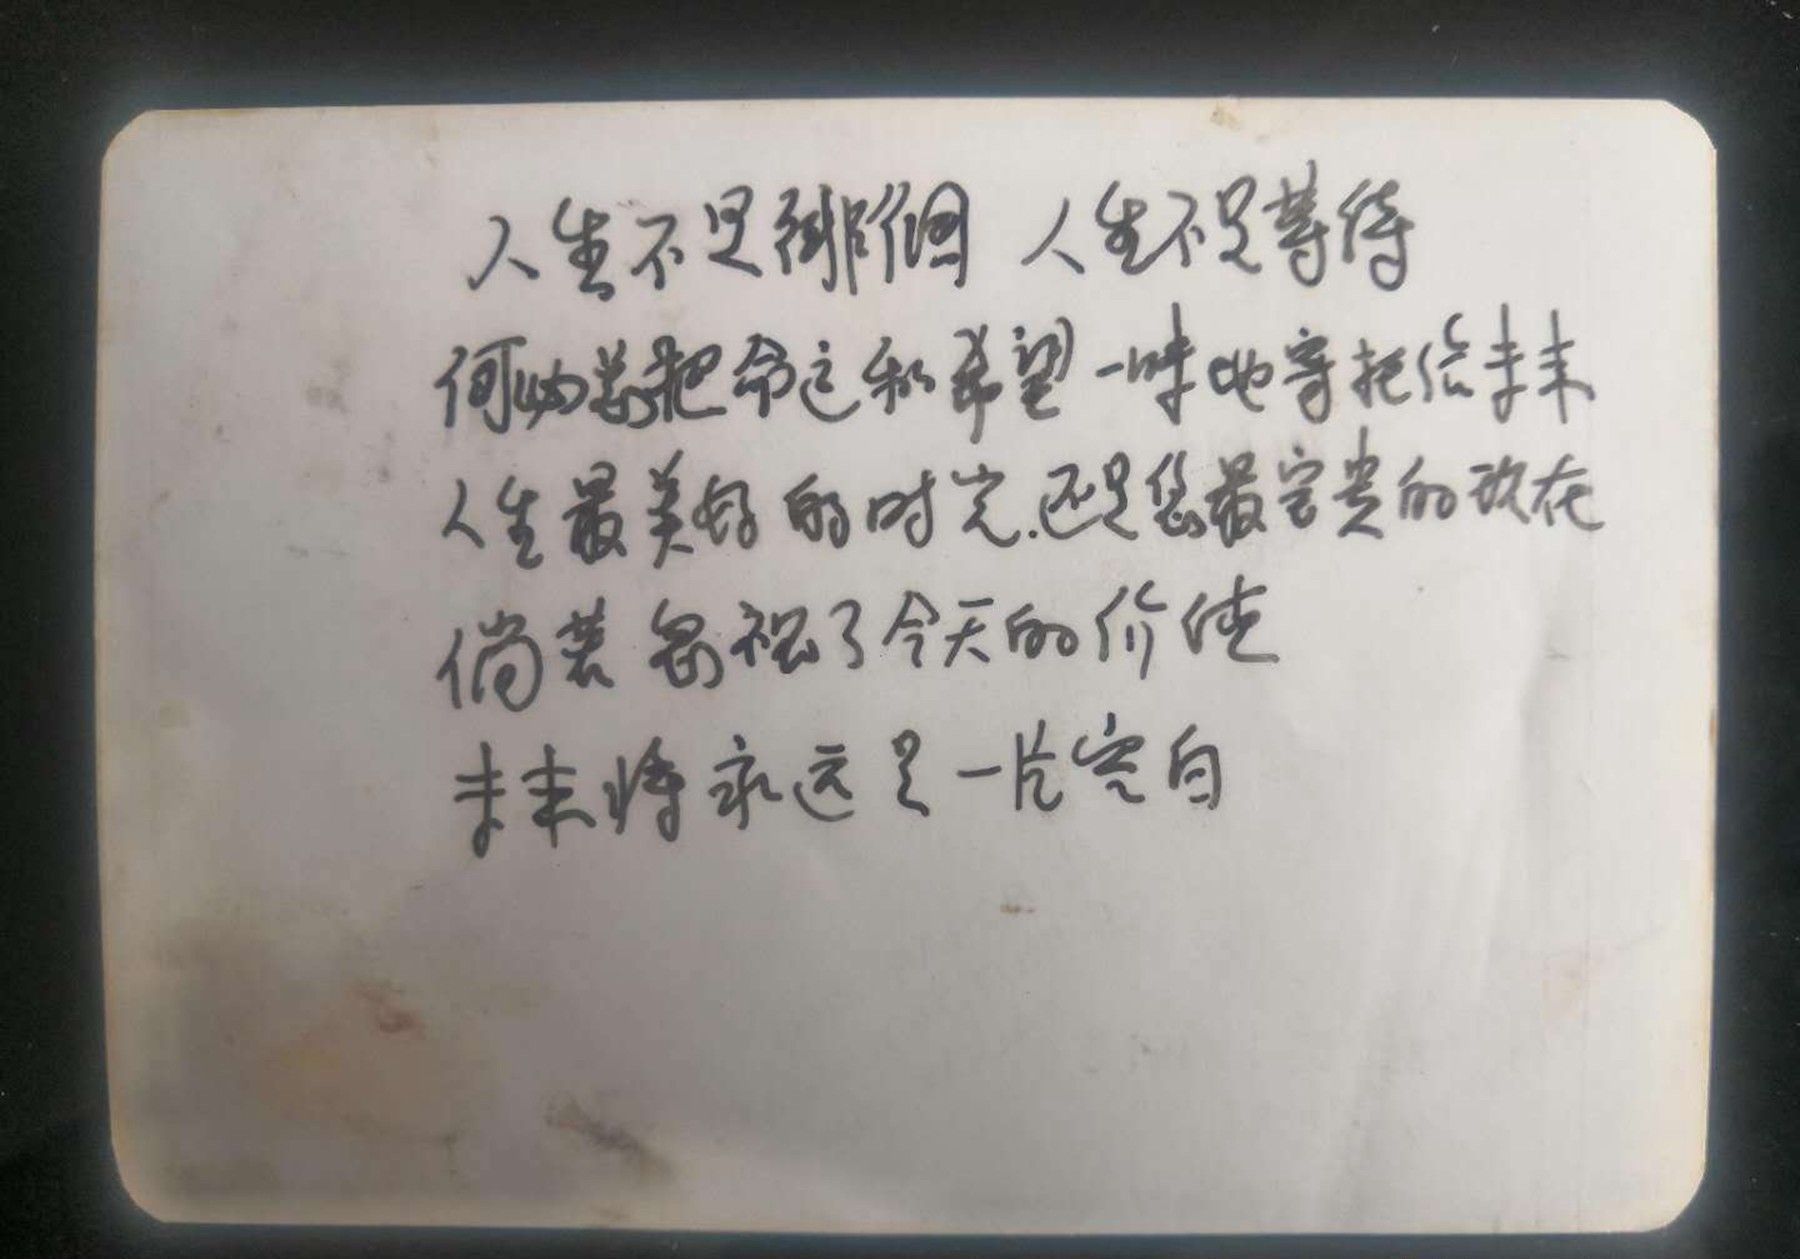 人生不是徘徊 人生不是等待
何必总把命运和希望一味地寄托给未来
人生最美好的时光.还是您最宝贵的现在
倘若忽视了今天的价值
未来将永远是一片空白